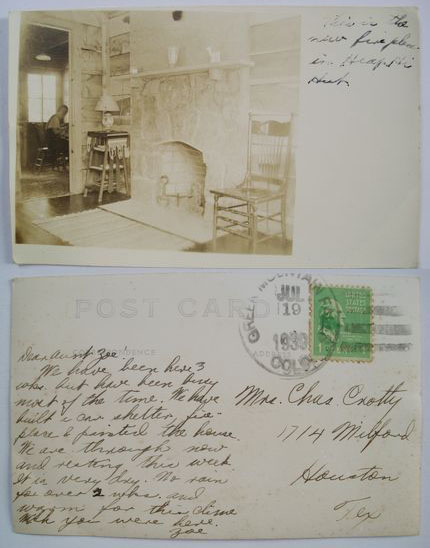 This is the
new fire place
in Heap Hi
Hut.
POST CARD
CORRESPONDENCE
ADDRESS
GREEN MOUNTAIN
JUL
19
193
COLO.
UNITED
STATES
POSTAGE
1
Dear Aunt Zoe
We have been here 3
wks. but have been busy
most of the time. We have
built a car shelter, fire-
place & painted the house.
We are through now
and resting this week
It is very dry. No rain
for over 2 whs. and
warm for this clime
Wish you were here.
Zoe
Mrs. Chas Crotty
1714 Milford
Houston
Tex